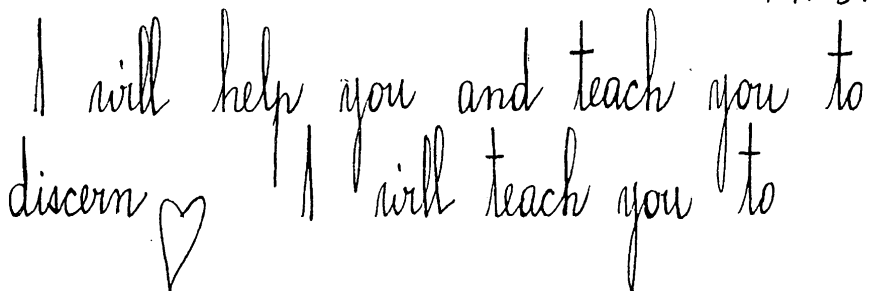 I will help you and teach you to
discern ♡ I will teach you to